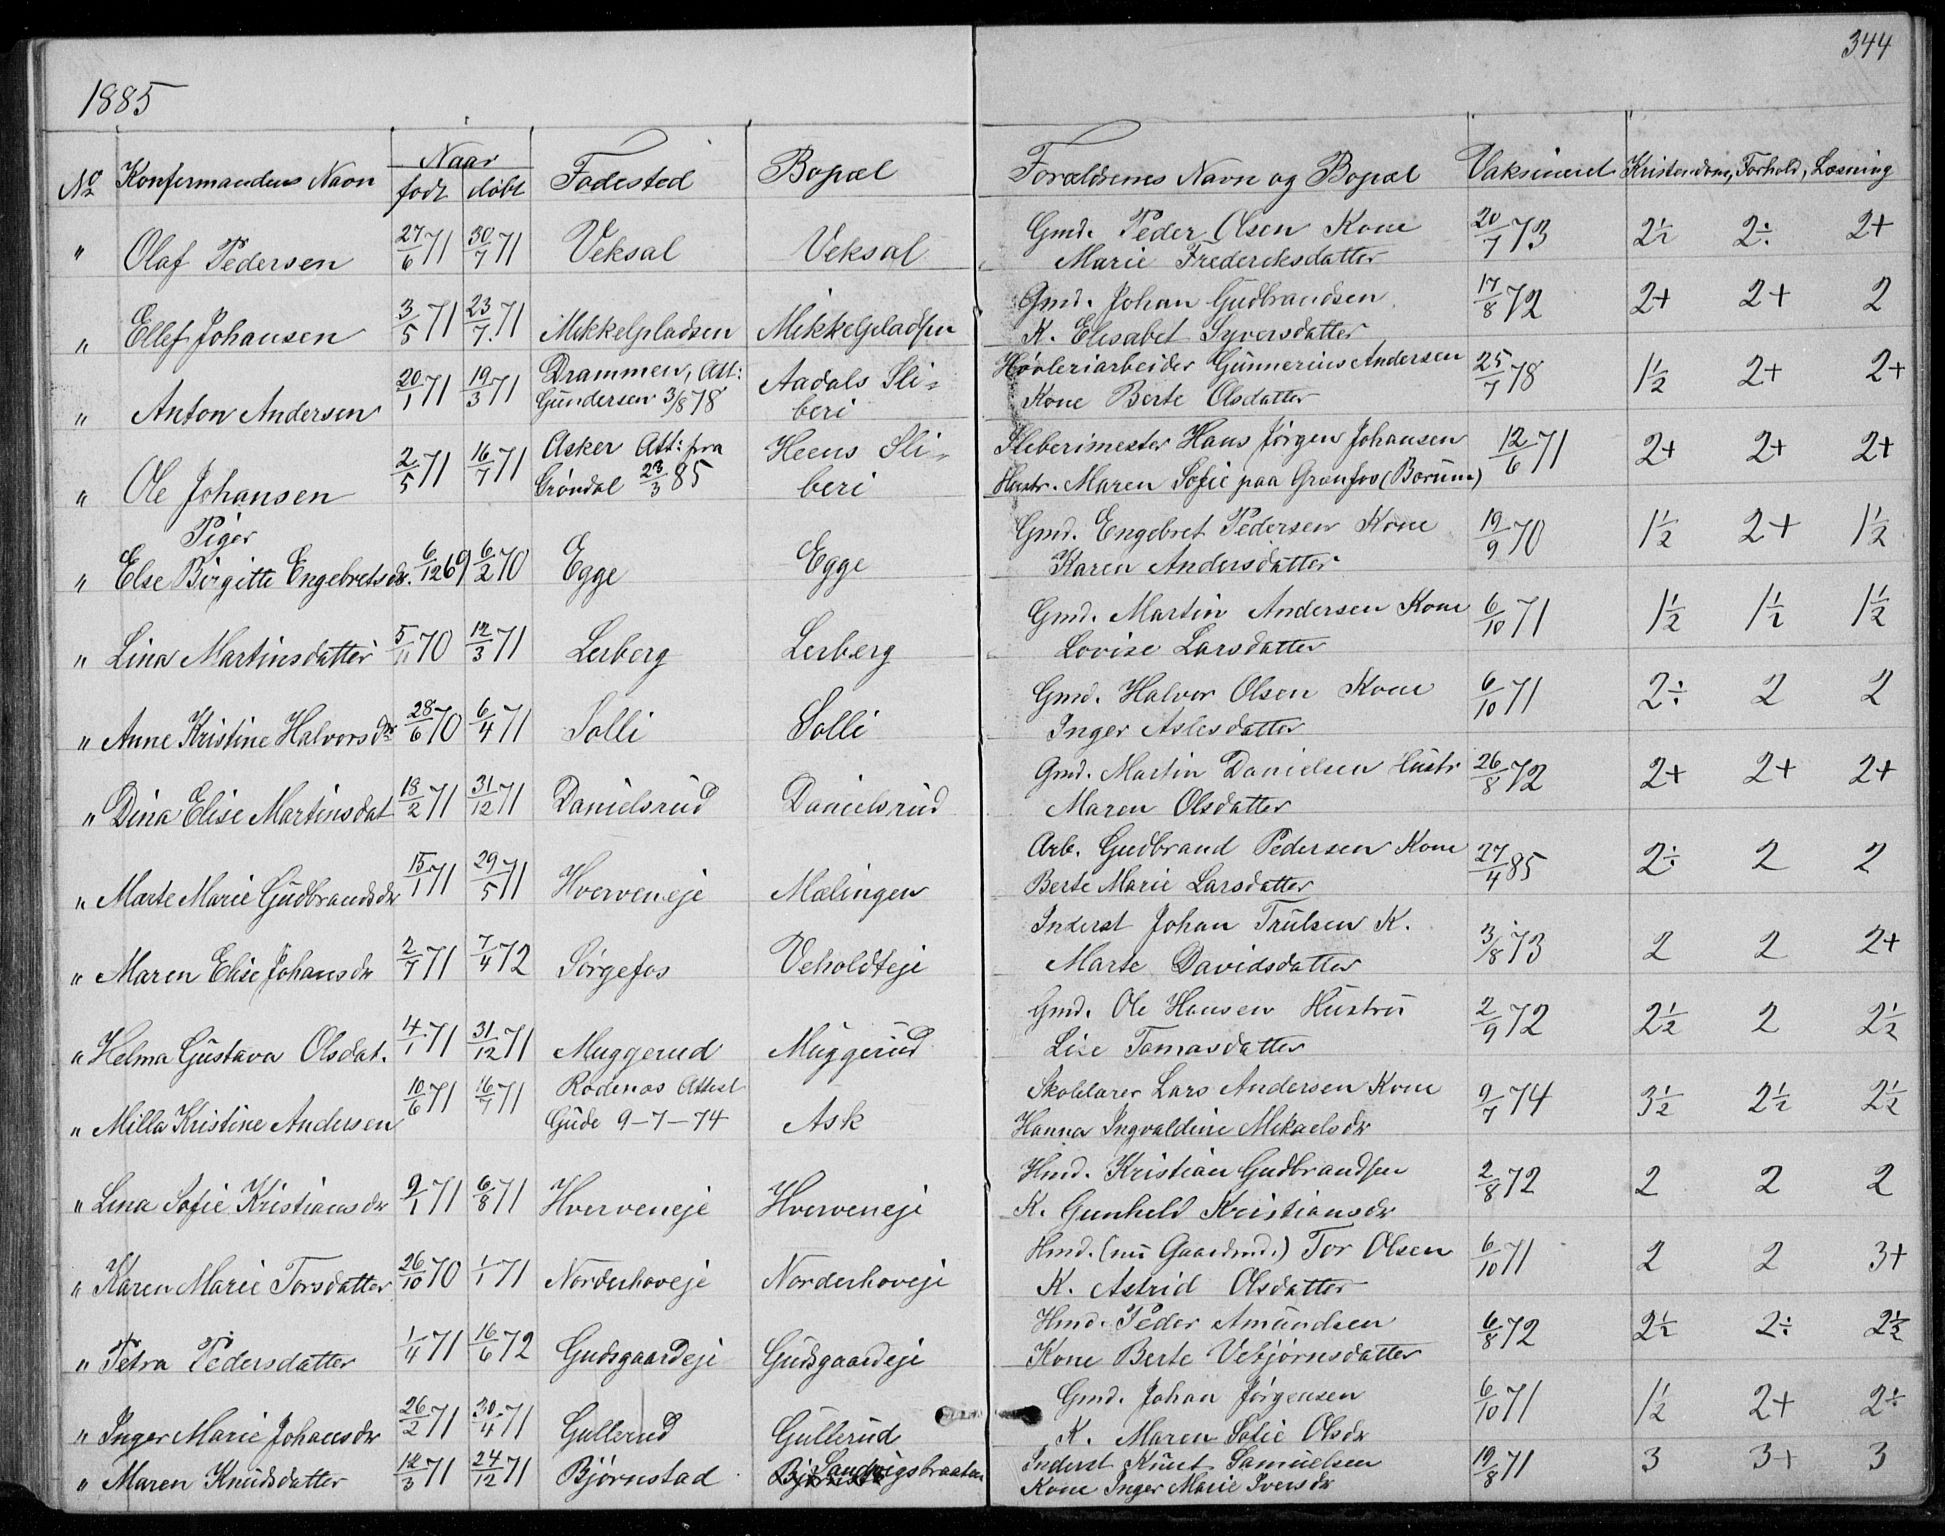 344
1885
No Konfermandens Navn Naar født døbt Fødested Bopæl Forældrenes Navn og Bopæl Vaksineret Kristendom, Forhold, Læsning
" Olaf Pedersen 27/6 71 30/7 71 Veksal Veksal Gmd. Peder Olsen Kone 20/7 73 2½ 2÷ 2+
Marie Frederiksdatter
" Ellef Johansen 3/5 71 23/7 71 Mikkelpladsen Mikkelpladsen Gmd. Johan Gudbrandsen 17/8 72 2+ 2+ 2
K. Elisabet Syversdatter
" Anton Andersen 20/1 71 19/3 71 Drammen, Att: Aadals Sli= Høvleriarbeider Gunnerius Andersen 25/7 78 1½ 2+ 2+
Gundersen 3/8 78 beri Kone Berte Olsdatter
" Ole Johansen 2/5 71 16/7 71 Asker Att: fra Heens Sli= Sliberimester Hans Jørgen Johansen 12/6 71 2+ 2+ 2+
Grøndal 23/3 85 beri Hustr. Maren Sofie paa Granfos (Bærum)
Piger
" Else Birgitte Engebretsdr. 6/12 69 6/2 70 Egge Egge Gmd. Engebret Pedersen Kone 19/9 70 1½ 2+ 1½
Karen Andersdatter
" Lina Martinsdatter 5/11 70 12/3 71 Lerberg Lerberg Gmd. Martin Andersen Kone 6/10 71 1½ 1½ 1½
Lovise Larsdatter
" Anne Kristine Halvorsdr 28/6 70 6/4 71 Solli Solli Gmd. Halvor Olsen Kone 6/10 71 2÷ 2 2
Inger Aslesdatter
" Dina Elise Martinsdat 18/2 71 31/12 71 Danielsrud Danielsrud Gmd. Martin Danielsen Hustr 26/8 72 2+ 2+ 2+
Maren Olsdatter
" Marte Marie Gudbrandsdr 15/1 71 29/5 71 Hverveneje Mælingen Arb. Gudbrand Pedersen Kone 27/4 85 2÷ 2 2
Berte Marie Larsdatter
" Maren Elise Johansdr 2/7 71 7/4 72 Sørgefos Veholdteje Inderst Johan Trulsen K. 3/8 73 2 2 2+
Marte Davidsdatter
" Helma Gustava Olsdat. 14/1 71 31/12 71 Muggerud Muggerud Gmd. Ole Hansen Hustru 2/9 72 2½ 2 2½
Lise Tomasdatter
" Milla Kristine Andersen 10/6 71 16/7 71 Rødenæs Attest Ask Skolelærer Lars Andersen Kone 9/7 74 3½ 2½ 2½
Gude 9-7-74 Hanna Ingvaldine Mikaelsdr
" Lina Sofie Kristiansdr 9/1 71 6/8 71 Hverveneje Hverveneje Hmd. Kristian Gudbrandsen 2/8 72 2 2 2
K. Gunhild Kristiansdr
" Karen Marie Torsdatter 26/10 70 1/1 71 Norderhoveje Norderhoveje Hmd. (nu Gaardmd.) Tor Olsen 6/10 71 2 2 3+
K. Astrid Olsdatter
" Petra Pedersdatter 1/4 71 16/6 72 Gudsgaardeje Gudsgaardeje Hmd. Peder Amundsen 6/8 72 2½ 2÷ 2½
Kone Berte Vebjørnsdatter
" Inger Marie Johansdr 26/2 71 30/4 71 Gullerud Gullerud Gmd. Johan Jørgensen 6/10 71 1½ 2+ 2÷
K. Maren Sofie Olsdr
" Maren Knudsdatter 12/3 71 24/12 71 Bjørnstad Sandvigsbraaten Inderst Knut Samuelsen 19/8 71 3 3+ 3
Kone Inger Marie Iversdr